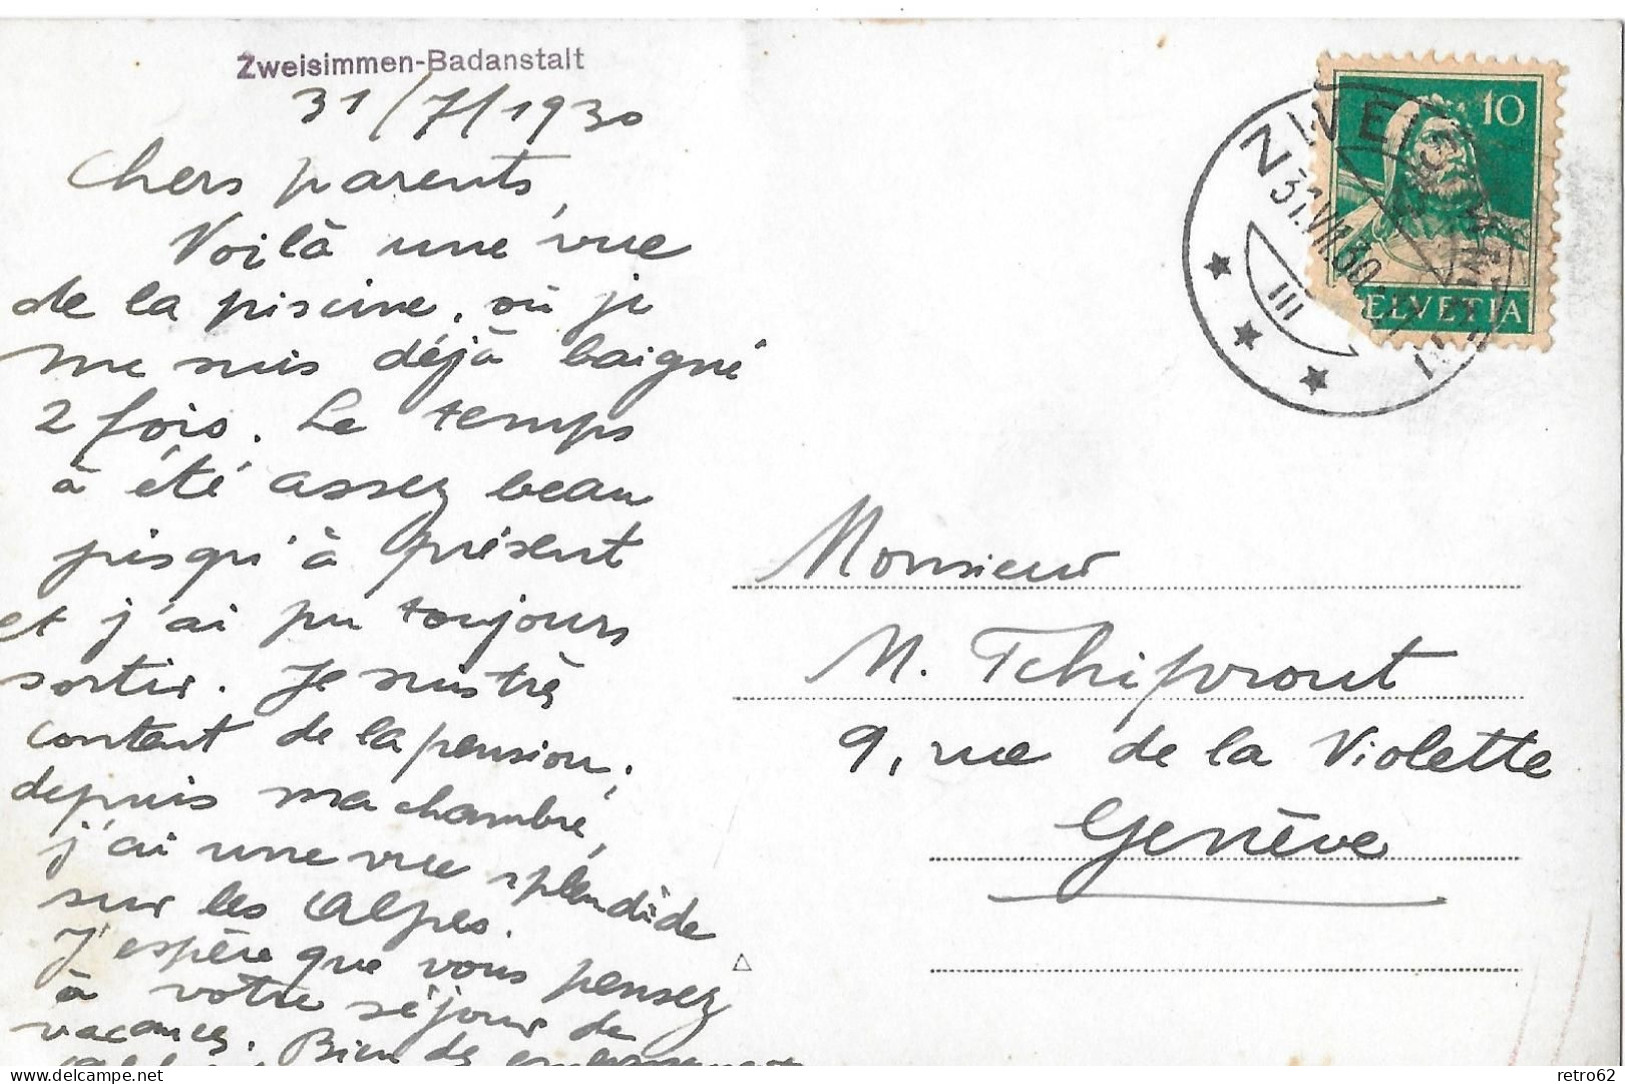 Zweisimmen-Badanstalt
31/7/1930
Chers parents,
Voilà une vue
de la piscine, où je
me suis déjà baigné
2 fois. Le temps
a été assez beau
jusqu'à présent
et j'ai pu toujours
sortir. Je suis très
content de la pension;
depuis ma chambre,
j'ai une vue splendide
sur les Alpes.
J'espère que vous pensez
à votre séjour de
vacances. Bien de
10
HELVETIA
ZWEISIMMEN
31.VII.30
III
Monsieur
M. Tchiprout
9, rue de la Violette
Genève
delcampe.net
retro62